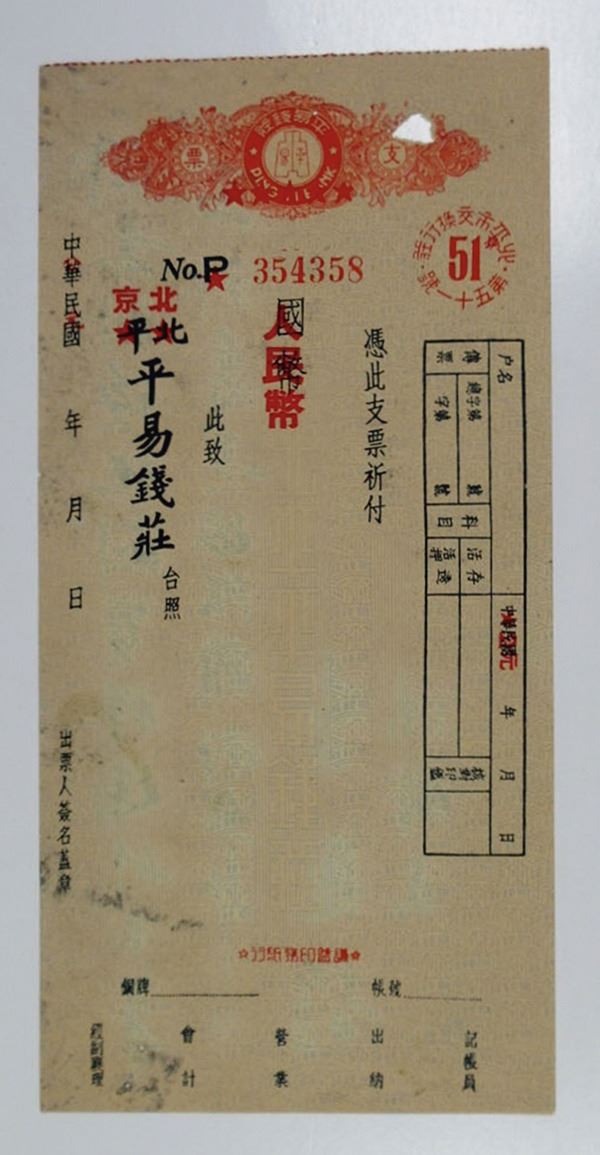 平易錢莊
支票
No.P 354358
北平市交換行莊
51
第五十一號
憑此支票祈付
國幣
人民幣
此致
北京
北平
平易錢莊
台照
中華民國 年 月 日
出票人簽名蓋章
户名
傳票
總字第 號
字第 號
科目
活存
活透
中華民國 年 月 日
核對印鑑
銅牌
帳號
記帳員
出納
營業
會計